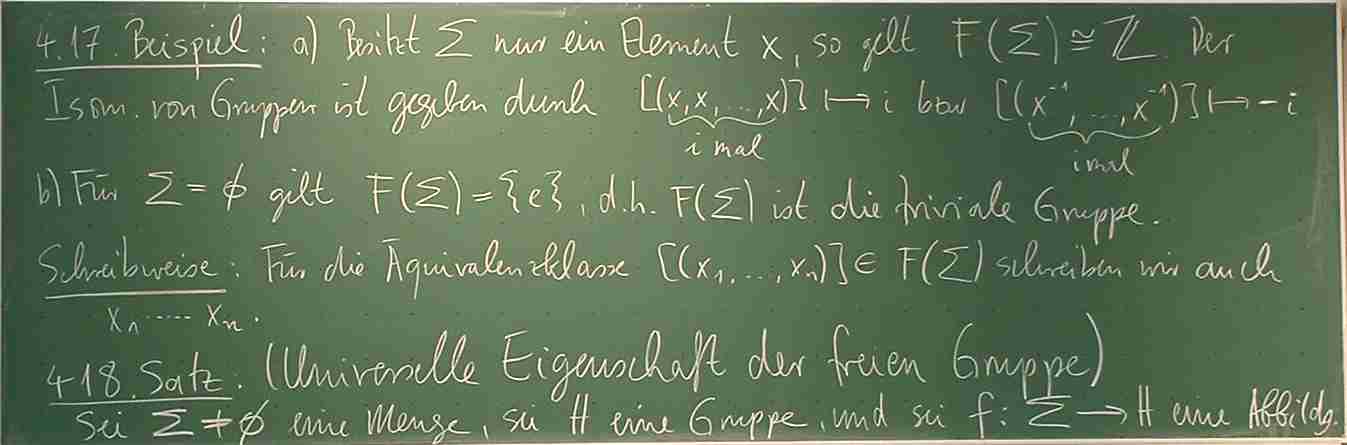 4.17. Beispiel: a) Besitzt Σ nur ein Element x, so gilt F(Σ) ≅ ℤ. Der
Isom. von Gruppen ist gegeben durch [(x, x, ..., x)] ↦ i bzw [(x⁻¹, ..., x⁻¹)] ↦ -i
i mal i mal
b) Für Σ = ∅ gilt F(Σ) = {e}, d.h. F(Σ) ist die triviale Gruppe.
Schreibweise: Für die Äquivalenzklasse [(x₁, ..., xₙ)] ∈ F(Σ) schreiben wir auch
x₁ ····· xₙ.
4.18. Satz. (Universelle Eigenschaft der freien Gruppe)
Sei Σ ≠ ∅ eine Menge, sei H eine Gruppe, und sei f: Σ → H eine Abbildg.